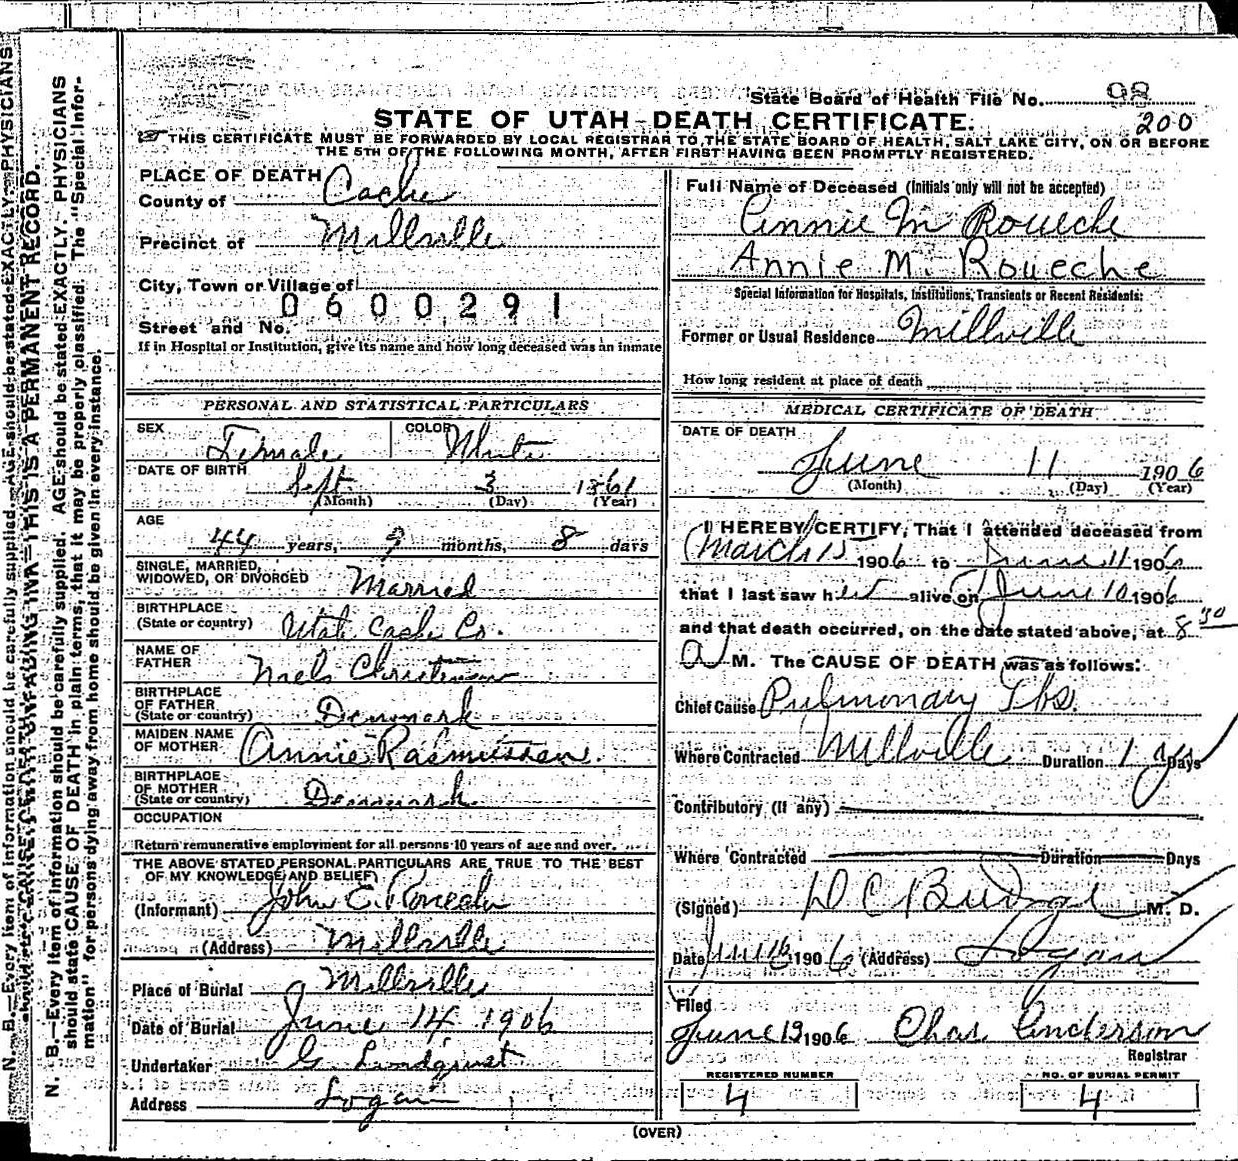 State Board of Health File No. 98
200
STATE OF UTAH—DEATH CERTIFICATE.
THIS CERTIFICATE MUST BE FORWARDED BY LOCAL REGISTRAR TO THE STATE BOARD OF HEALTH, SALT LAKE CITY, ON OR BEFORE
THE 5TH OF THE FOLLOWING MONTH, AFTER FIRST HAVING BEEN PROMPTLY REGISTERED.
PLACE OF DEATH
County of Cache
Precinct of Millville
City, Town or Village of
0600291
Street and No.
If in Hospital or Institution, give its name and how long deceased was an inmate
PERSONAL AND STATISTICAL PARTICULARS
SEX Female COLOR White
DATE OF BIRTH Sept 3 1861
(Month) (Day) (Year)
AGE
44 years, 9 months, 8 days
SINGLE, MARRIED,
WIDOWED, OR DIVORCED Married
BIRTHPLACE
(State or country) Utah Cache Co.
NAME OF
FATHER Niels Christensen
BIRTHPLACE
OF FATHER
(State or country) Denmark
MAIDEN NAME
OF MOTHER Annie Rasmussen.
BIRTHPLACE
OF MOTHER
(State or country) Denmark
OCCUPATION
Return remunerative employment for all persons 10 years of age and over.
THE ABOVE STATED PERSONAL PARTICULARS ARE TRUE TO THE BEST
OF MY KNOWLEDGE AND BELIEF
(Informant) John E. Roueche
(Address) Millville
Place of Burial Millville
Date of Burial June 14 1906
Undertaker G. Lundquist
Address Logan
Full Name of Deceased (Initials only will not be accepted)
Annie M Roueche
Annie M. Roueche
Special Information for Hospitals, Institutions, Transients or Recent Residents:
Former or Usual Residence Millville
How long resident at place of death
MEDICAL CERTIFICATE OF DEATH
DATE OF DEATH
June 11 1906
(Month) (Day) (Year)
I HEREBY CERTIFY, That I attended deceased from
March 15 1906 to June 11 1906
that I last saw her alive on June 10 1906
and that death occurred, on the date stated above, at 8 30
A M. The CAUSE OF DEATH was as follows:
Chief Cause Pulmonary Tbs.
Where Contracted Millville Duration 1 y Days
Contributory (if any)
Where Contracted Duration Days
(Signed) D C Budge M. D.
Date June 1906 (Address) Logan
Filed
June 13 1906 Chas. Anderson
Registrar
REGISTERED NUMBER
4
NO. OF BURIAL PERMIT
4
(OVER)
N. B.—Every item of information should be carefully supplied. AGE should be stated EXACTLY. PHYSICIANS
should state CAUSE OF DEATH in plain terms, that it may be properly classified. The "Special Infor-
mation" for persons dying away from home should be given in every instance.
N. B.—Every item of information should be carefully supplied. AGE should be stated EXACTLY. PHYSICIANS
THIS IS A PERMANENT RECORD.